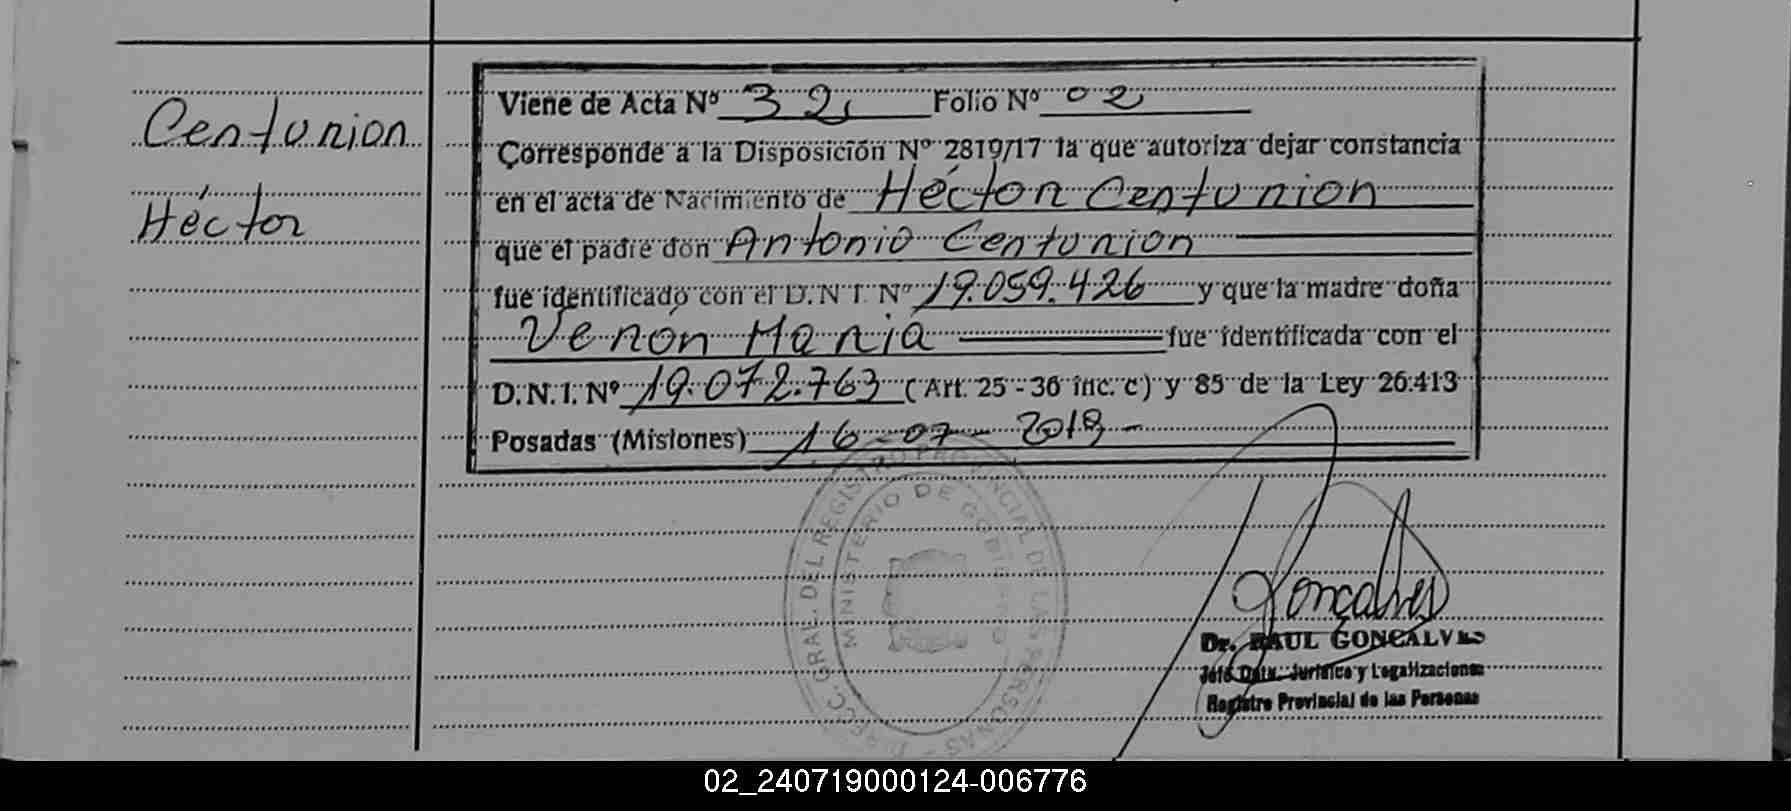 Centurion
Héctor
Viene de Acta Nº 32 Folio Nº 02
Corresponde a la Disposición Nº 2819/17 la que autoriza dejar constancia
en el acta de Nacimiento de Héctor Centurion
que el padre don Antonio Centurion
fue identificado con el D.N.I. Nº 19.059.426 y que la madre doña
Verón María fue identificada con el
D.N.I. Nº 19.072.763 (Art. 25 - 36 inc. c) y 85 de la Ley 26.413
Posadas (Misiones) 16-07-2018-
DIRECC. GRAL. DEL REGISTRO PROVINCIAL DE LAS PERSONAS -
MINISTERIO DE GOBIERNO
Gonçalves
Dr. RAUL GONCALVES
Jefe Dpto. Jurídico y Legalizaciones
Registro Provincial de las Personas
02_240719000124-006776